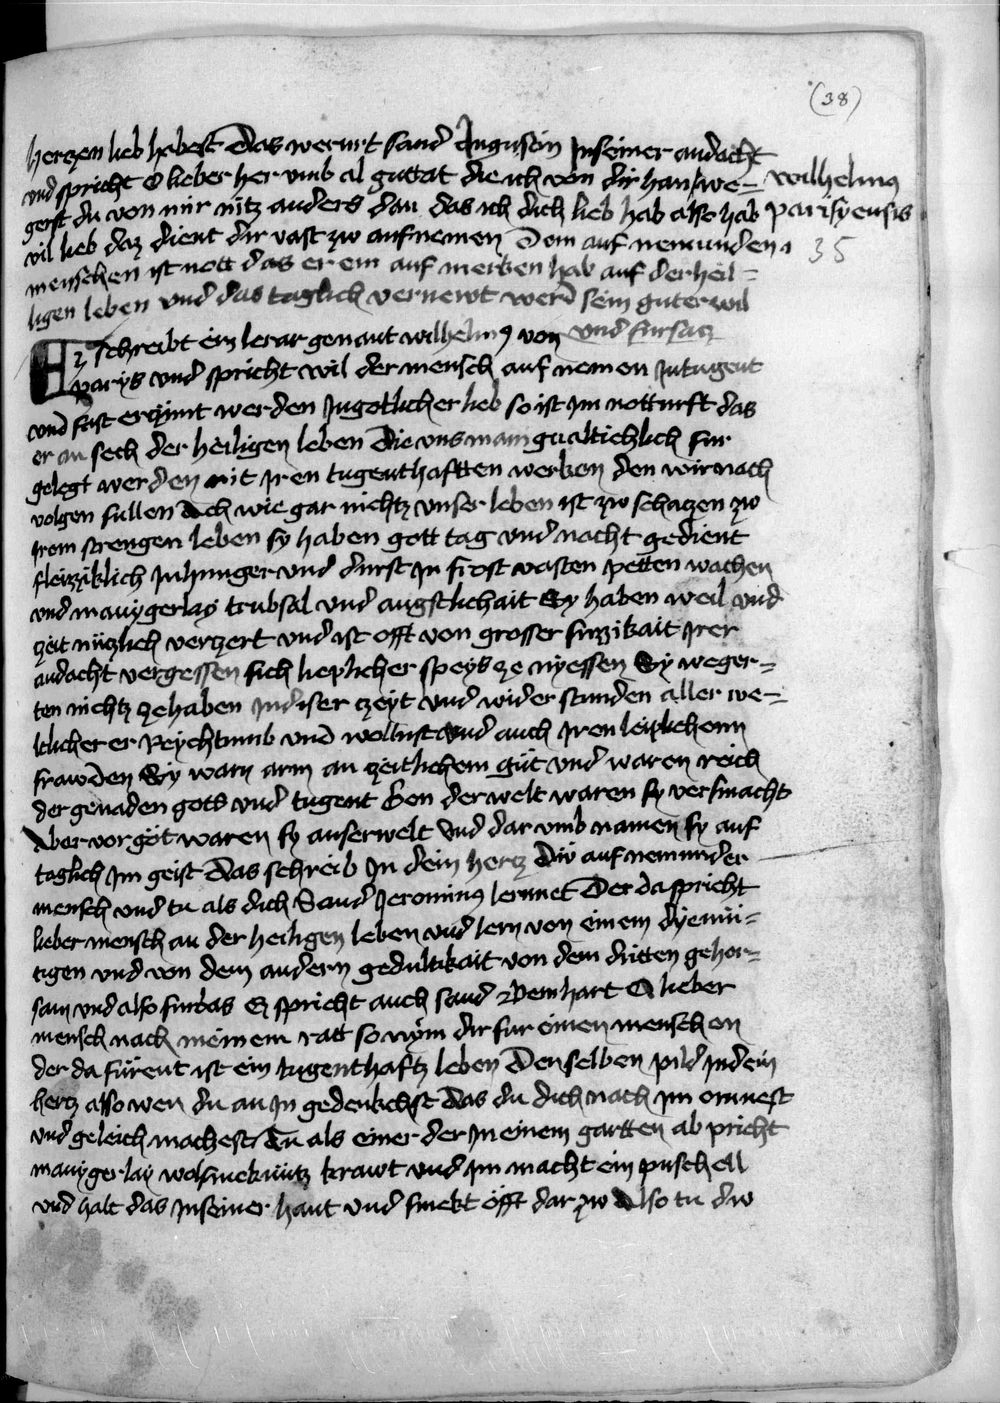 (38)
hertzen lieb habest Das wermt sand Augustin In seiner andacht
vnd spricht O lieber her vmb al guttat die ich von dir han we- wilhelmus
gerst du von mir nitz anders dan das ich dich lieb hab also hab parisyensis
vil lieb daz dient dir vast zw aufnemen Dem auf nemunden 35
menschen ist nott das er ein auf merken hab auf der heil=
ligen leben vnd das taglich vernewt werd sein guter wil
Ez schreibt ein lerar genant wilhelmus von vnd fursatz
parys vnd spricht wil der mensch auf nemen In tugent
vnd fast erczunt werden In gotlicher lieb so ist Im notturft das
er an sech der heiligen leben Die vns manigualtichlich fur
gelegt werden mit Iren tugenthafften werken den wir nach
volgen sullen Ach wie gar nichtz vnser leben ist zw schatzen zw
Irem strengen leben sy haben gott tag vnd nacht gedient
fleizziklich In hunger vnd durst In frost vasten petten wachen
vnd manygerlay trubsal vnd angstlichait Sy haben weil vnd
zeit nuczlich verczert vnd ist offt von grosser Irer
andacht vergessen sich lieplicher speys ze nyessen Sy weger=
ten nichtz ze haben In diser czeyt vnd wider stunden aller we=
ltlicher er Reychtumb vnd wollust vnd auch Iren leiplichenn
frawden Sy warn arm an zeitlichem gut vnd waren reich
der genaden gots vnd tugent Von der welt waren sy versmacht
Aber vor got waren sy auserwelt Vnd dar vmb namen sy auf
taglich Im geist Das schreib In dein hertz Du auf nemunder
mensch vnd tu als dich Sand Jeronimus lernnet Der da spricht
lieber mensch an der heiligen leben vnd lern von einem dyemu=
tigen vnd von dem andern gedultikait von dem dritten gehor=
sam vnd also furbas Ez spricht auch sand Bernhart O lieber
mensch nach meinem ratt so nym dir fur einen menschen
der da furent ist ein tugenthaftz leben Denselben pild In dein
hertz also wen du an In gedenkchst Das du dich nach Im
vnd geleich machest Tu als einer der In einem gartten ab pricht
manygerlay krawt vnd Im macht ein puschell
vnd halt das In seiner hant vnd smekt offt dar zw Also tu dw